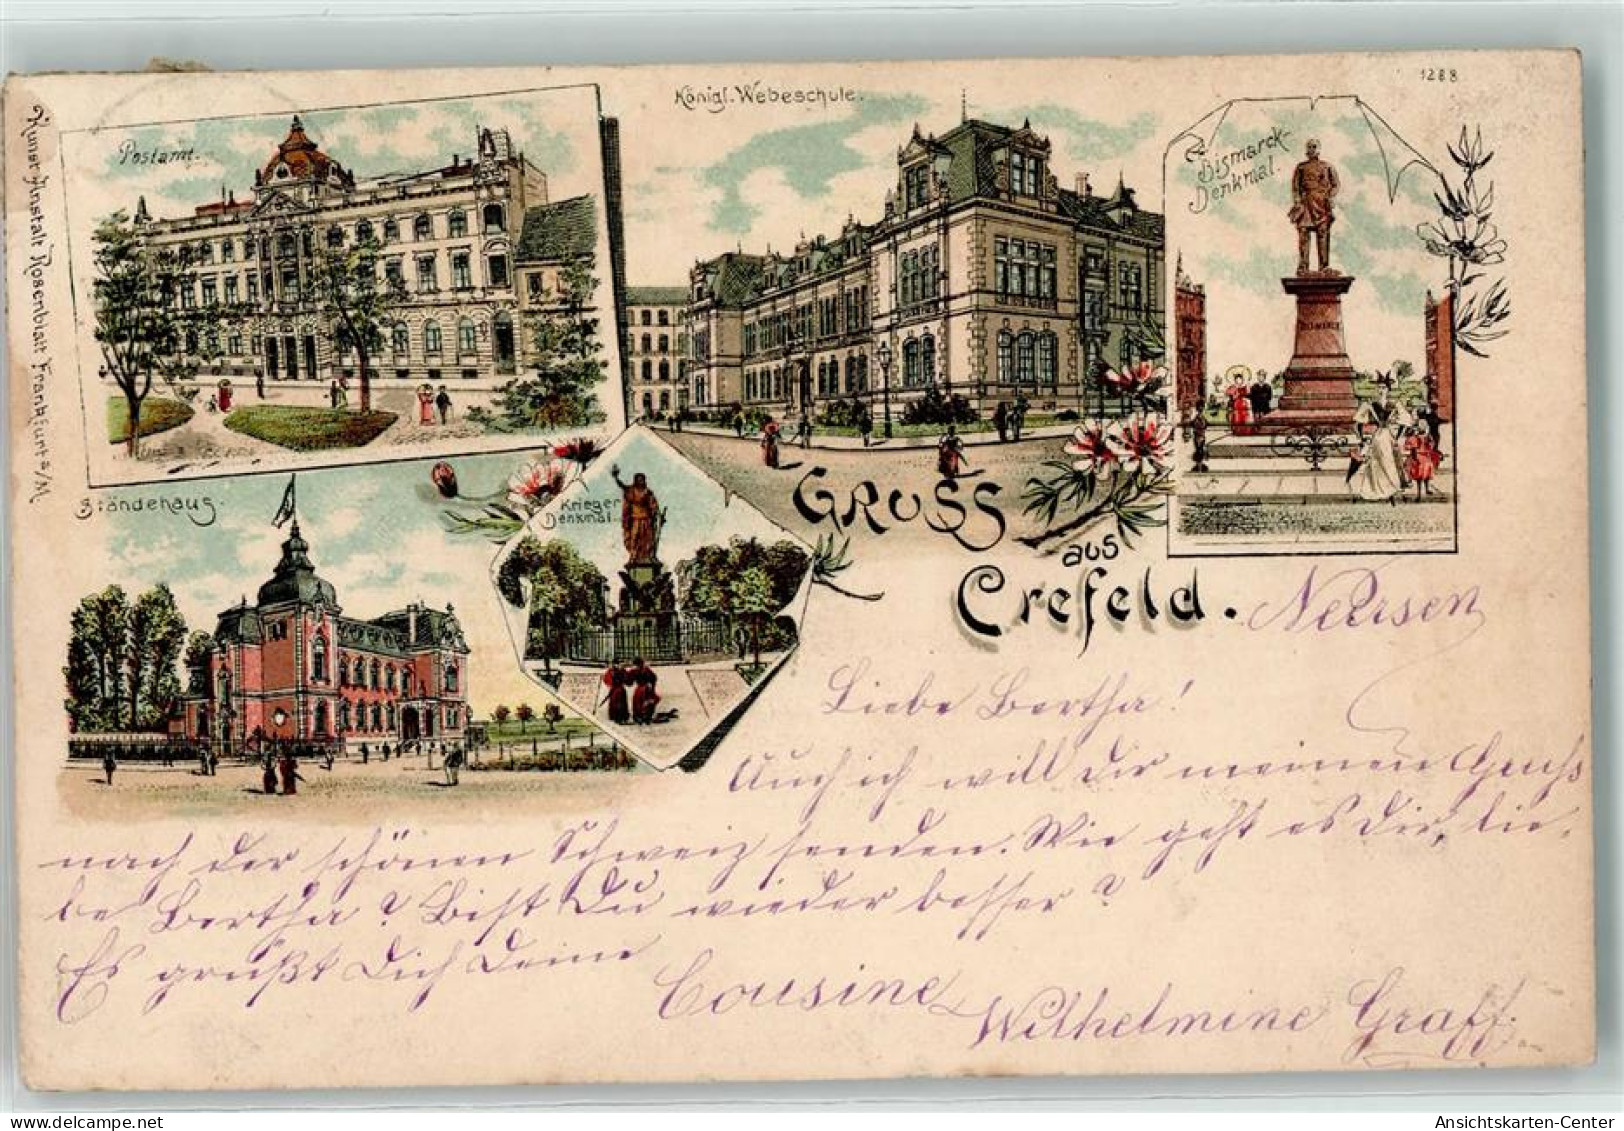 1288
Königl. Webeschule.
Postamt.
Bismarck-
Denkmal.
BISMARCK
Kunst-Anstalt Rosenblatt Frankfurt a/M.
Ständehaus.
Krieger
Denkmal.
GRUSS
aus
Crefeld.
Neersen
Liebe Bertha!
Auch ich will Dir meinen Gruß
nach der schönen Schweiz senden. Wie geht es Dir, lie-
be Bertha? Bist Du wieder besser?
Es grüßt Dich Deine
Cousine
Wilhelmine Graff.
Ansichtskarten-Center